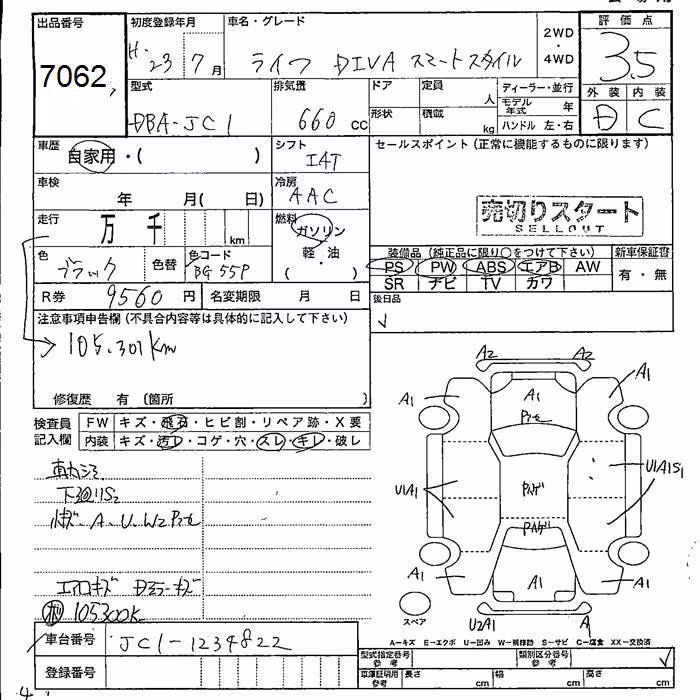 出品番号 初度登録年月 車名・グレード 評価点
7062 H・23 7月 ライフ DIVA スマートスタイル 2WD・4WD 3.5
型式 排気量 ドア 定員 人 ディーラー・並行 外装 内装
DBA-JC1 660cc 形状 積載 kg モデル年式 年 D C
ハンドル 左・右
車歴 自家用・( ) シフト I4T セールスポイント(正常に機能するものに限ります)
車検 年 月( 日) 冷房 AAC
売切りスタート
SELLOUT
走行 万 千 km 燃料 ガソリン 軽・油 ( )
色 ブラック 色替 色コード BG55P
装備品(純正品に限り○をつけて下さい) 新車保証書
PS PW ABS エアB AW 有・無
SR ナビ TV カワ
R券 9560円 名変期限 月 日 後日品
注意事項申告欄(不具合内容等は具体的に記入して下さい)
105.301km
修復歴 有(箇所 )
検査員記入欄 FW キズ・飛石・ヒビ割・リペア跡・X要
内装 キズ・汚レ・コゲ・穴・スレ・キレ・破レ
下廻りS2
エアロキズ Dミラーキズ
105300K
A2 A2
A1 A1 A1
U1A1 U1A1S1
A1 A1 A1
U2A1 A
スペア
A=キズ E=エクボ U=凹み W=補修跡 S=サビ C=腐食 XX=交換済
車台番号 JC1-1234822
型式指定番号 参考 類別区分番号 参考
登録番号 車庫証明用 参考 長さ cm 幅 cm 高さ cm